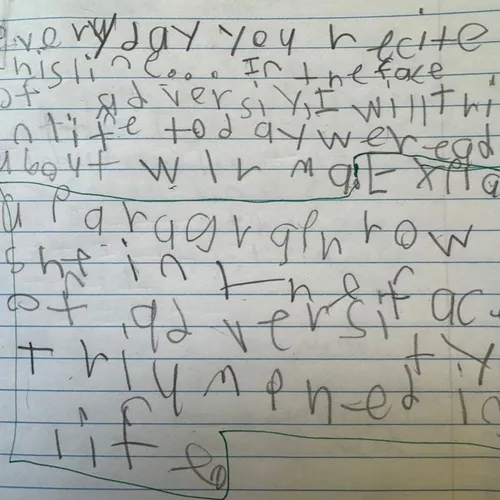 everyday you recite
this line... In the face
of adversity, I will tri
in life today we read
about wilma. Expla
a paragraph row
she in the fac-
of adversit
y triumphed in
life.